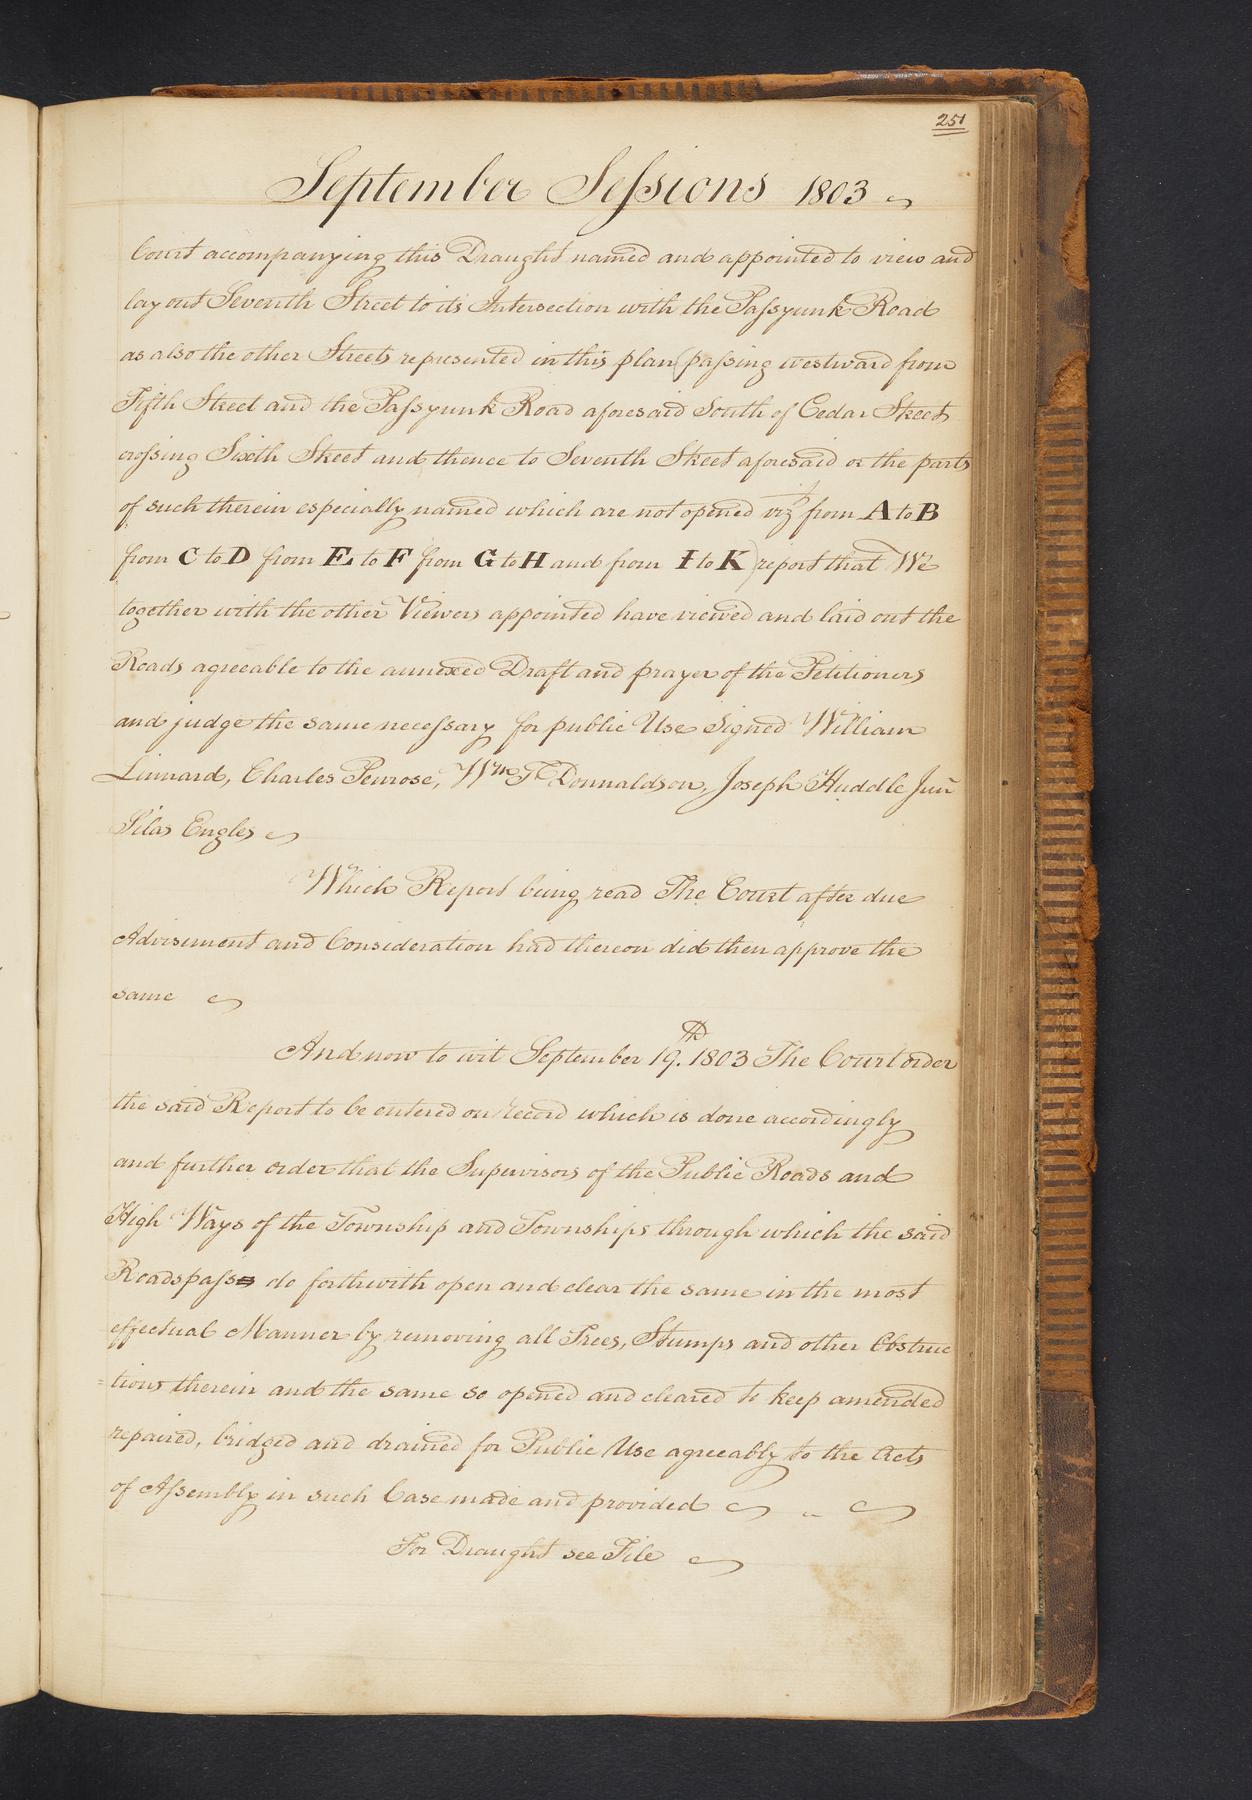 251
September Sessions 1803
Court accompanying this Draught named and appointed to view and
lay out Seventh Street to its Intersection with the Passyunk Road
as also the other Streets represented in this plan (passing westward from
Fifth Street and the Passyunk Road aforesaid South of Cedar Street
crossing Sixth Street and thence to Seventh Street aforesaid or the parts
of such therein especially named which are not opened viz from A to B
from C to D from E to F from G to H and from I to K) report that We
together with the other Viewers appointed have viewed and laid out the
Roads agreeable to the annexed Draft and prayer of the Petitioners
and judge the same necessary for public Use Signed William
Linnard, Charles Penrose, Wm T Donnaldson, Joseph Huddle Junr
Silas Engles
Which Report being read The Court after due
Advisement and Consideration had thereon did then approve the
same
And now to wit September 19th. 1803 The Court order
the said Report to be entered on record which is done accordingly
and further order that the Supervisors of the Public Roads and
High Ways of the Township and Townships through which the said
Roads pass do forthwith open and clear the same in the most
effectual Manner by removing all Trees, Stumps and other Obstruc
=tions therein and the same so opened and cleared to keep amended
repaired, bridged and drained for Public Use agreeably to the Acts
of Assembly in such Case made and provided
For Draught see File